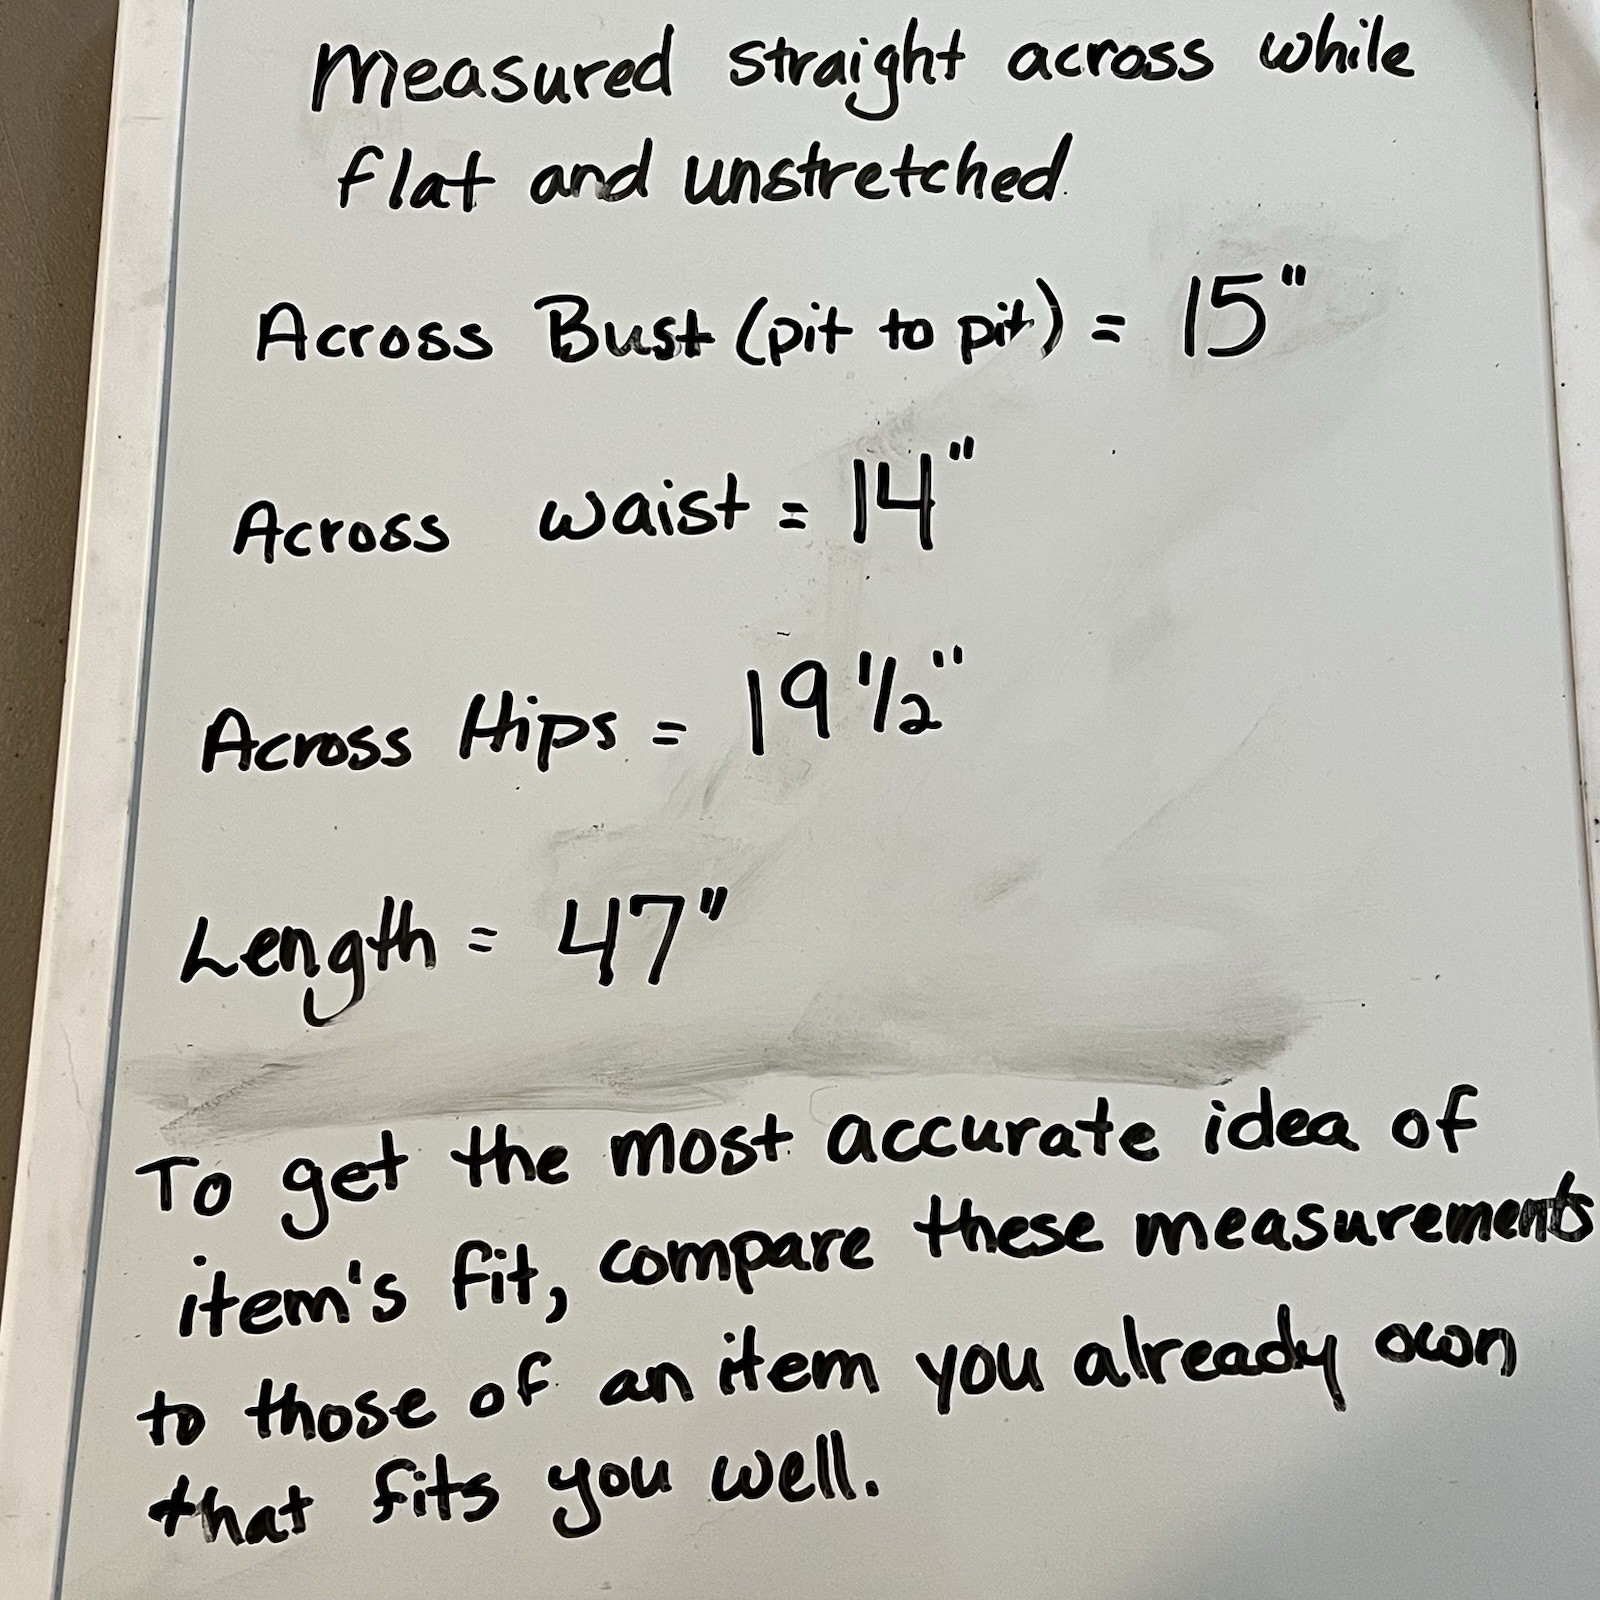 Measured straight across while
flat and unstretched.
Across Bust (pit to pit) = 15"
Across waist = 14"
Across Hips = 19 1/2"
Length = 47"
To get the most accurate idea of
item's fit, compare these measurements
to those of an item you already own
that fits you well.